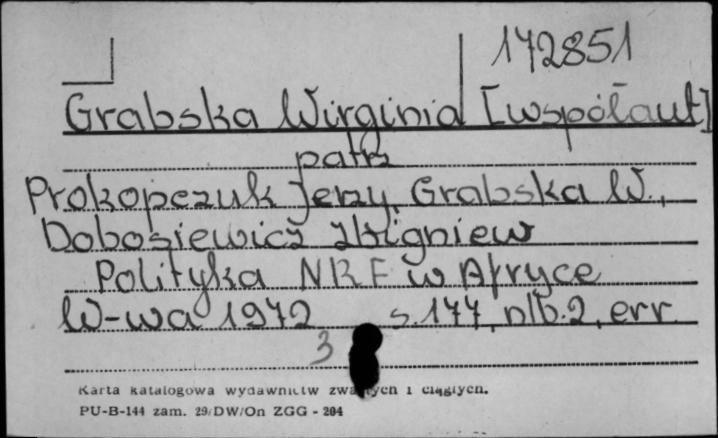 172851
Grabska Wirginia [współaut]
patrz
Prokopczuk Jerzy, Grabska W.,
Dobosiewicz Zbigniew
Polityka NRF w Afryce
W-wa 1972 s. 177, nlb. 2, err
3
Karta katalogowa wydawnictw zwartych i ciągłych.
PU-B-144 zam. 29/DW/On ZGG - 204